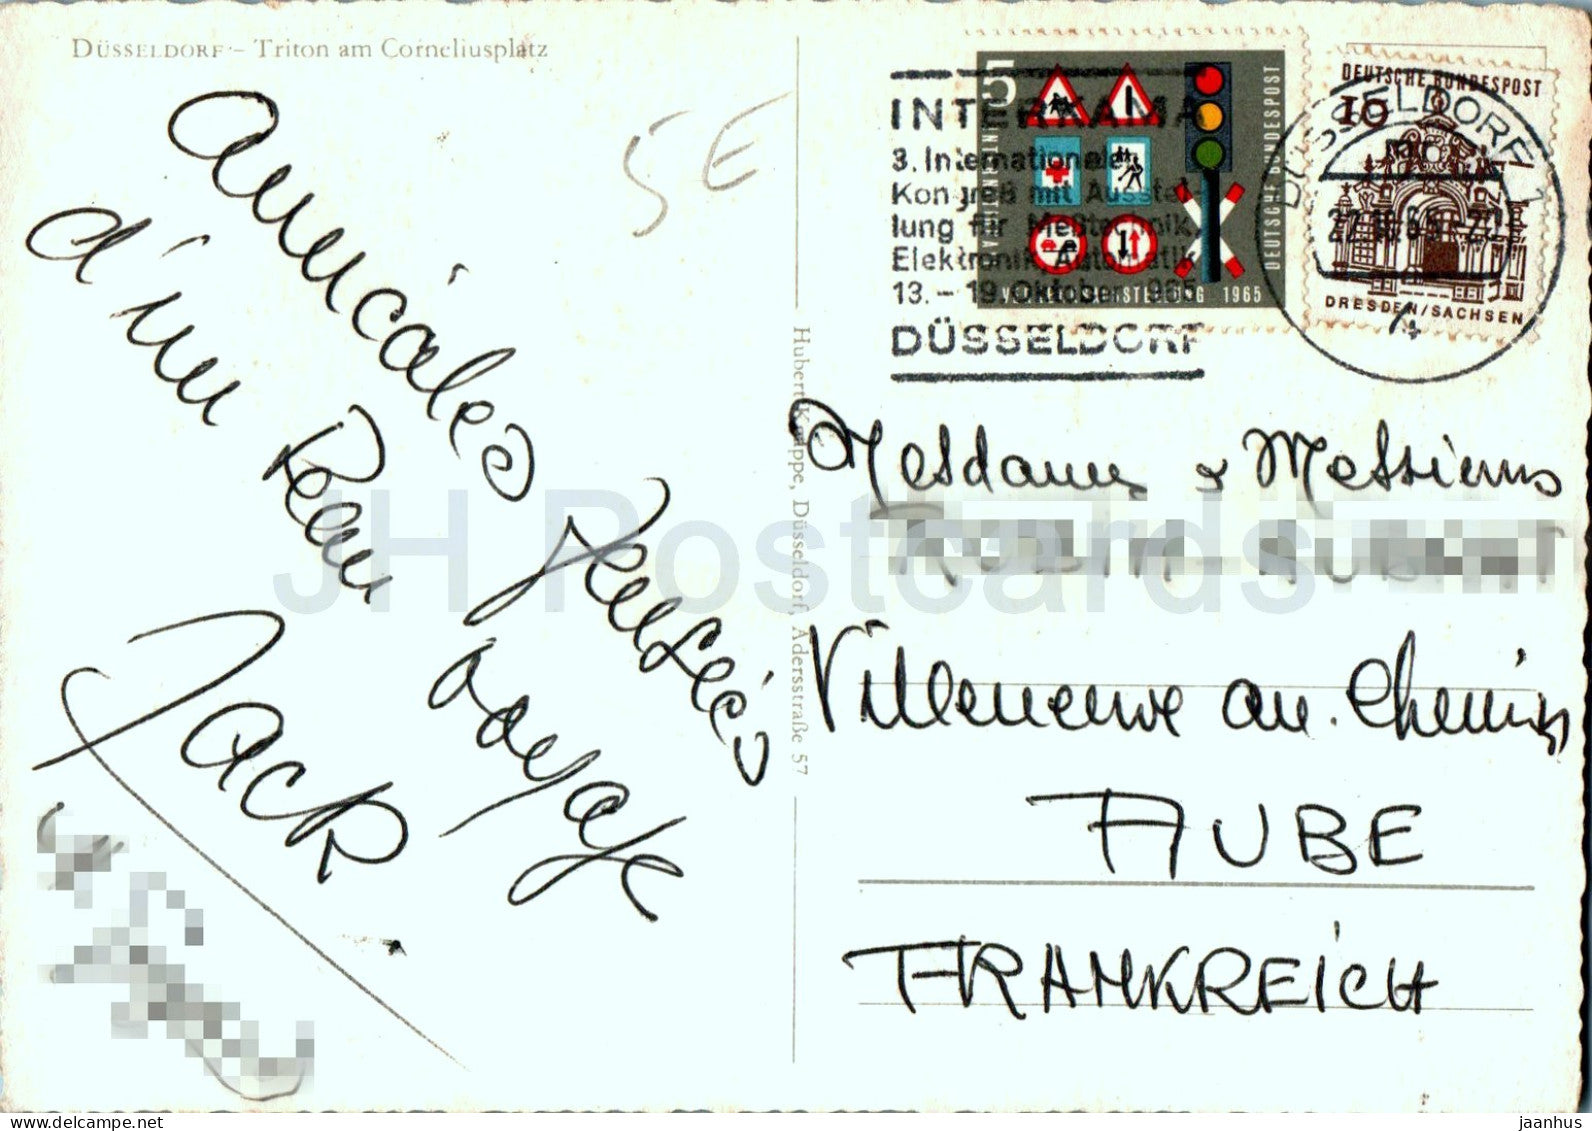 DÜSSELDORF – Triton am Corneliusplatz
5E
Amicales Pensées
d'un Beau voyage
JACK
Hubert Knippe, Düsseldorf, Adersstraße 57
INTERKAMA
3. Internationaler
Kongreß mit Ausstel-
lung für Meßtechnik,
Elektronik, Automatik
13. – 19. Oktober 1965
DÜSSELDORF
5
DEUTSCHE BUNDESPOST
1965
DEUTSCHE BUNDESPOST
10
DRESDEN/SACHSEN
DÜSSELDORF 1
Mesdames & Messieurs
Villeneuve au Chemin
AUBE
FRANKREICH
JH Postcards
jaanhus